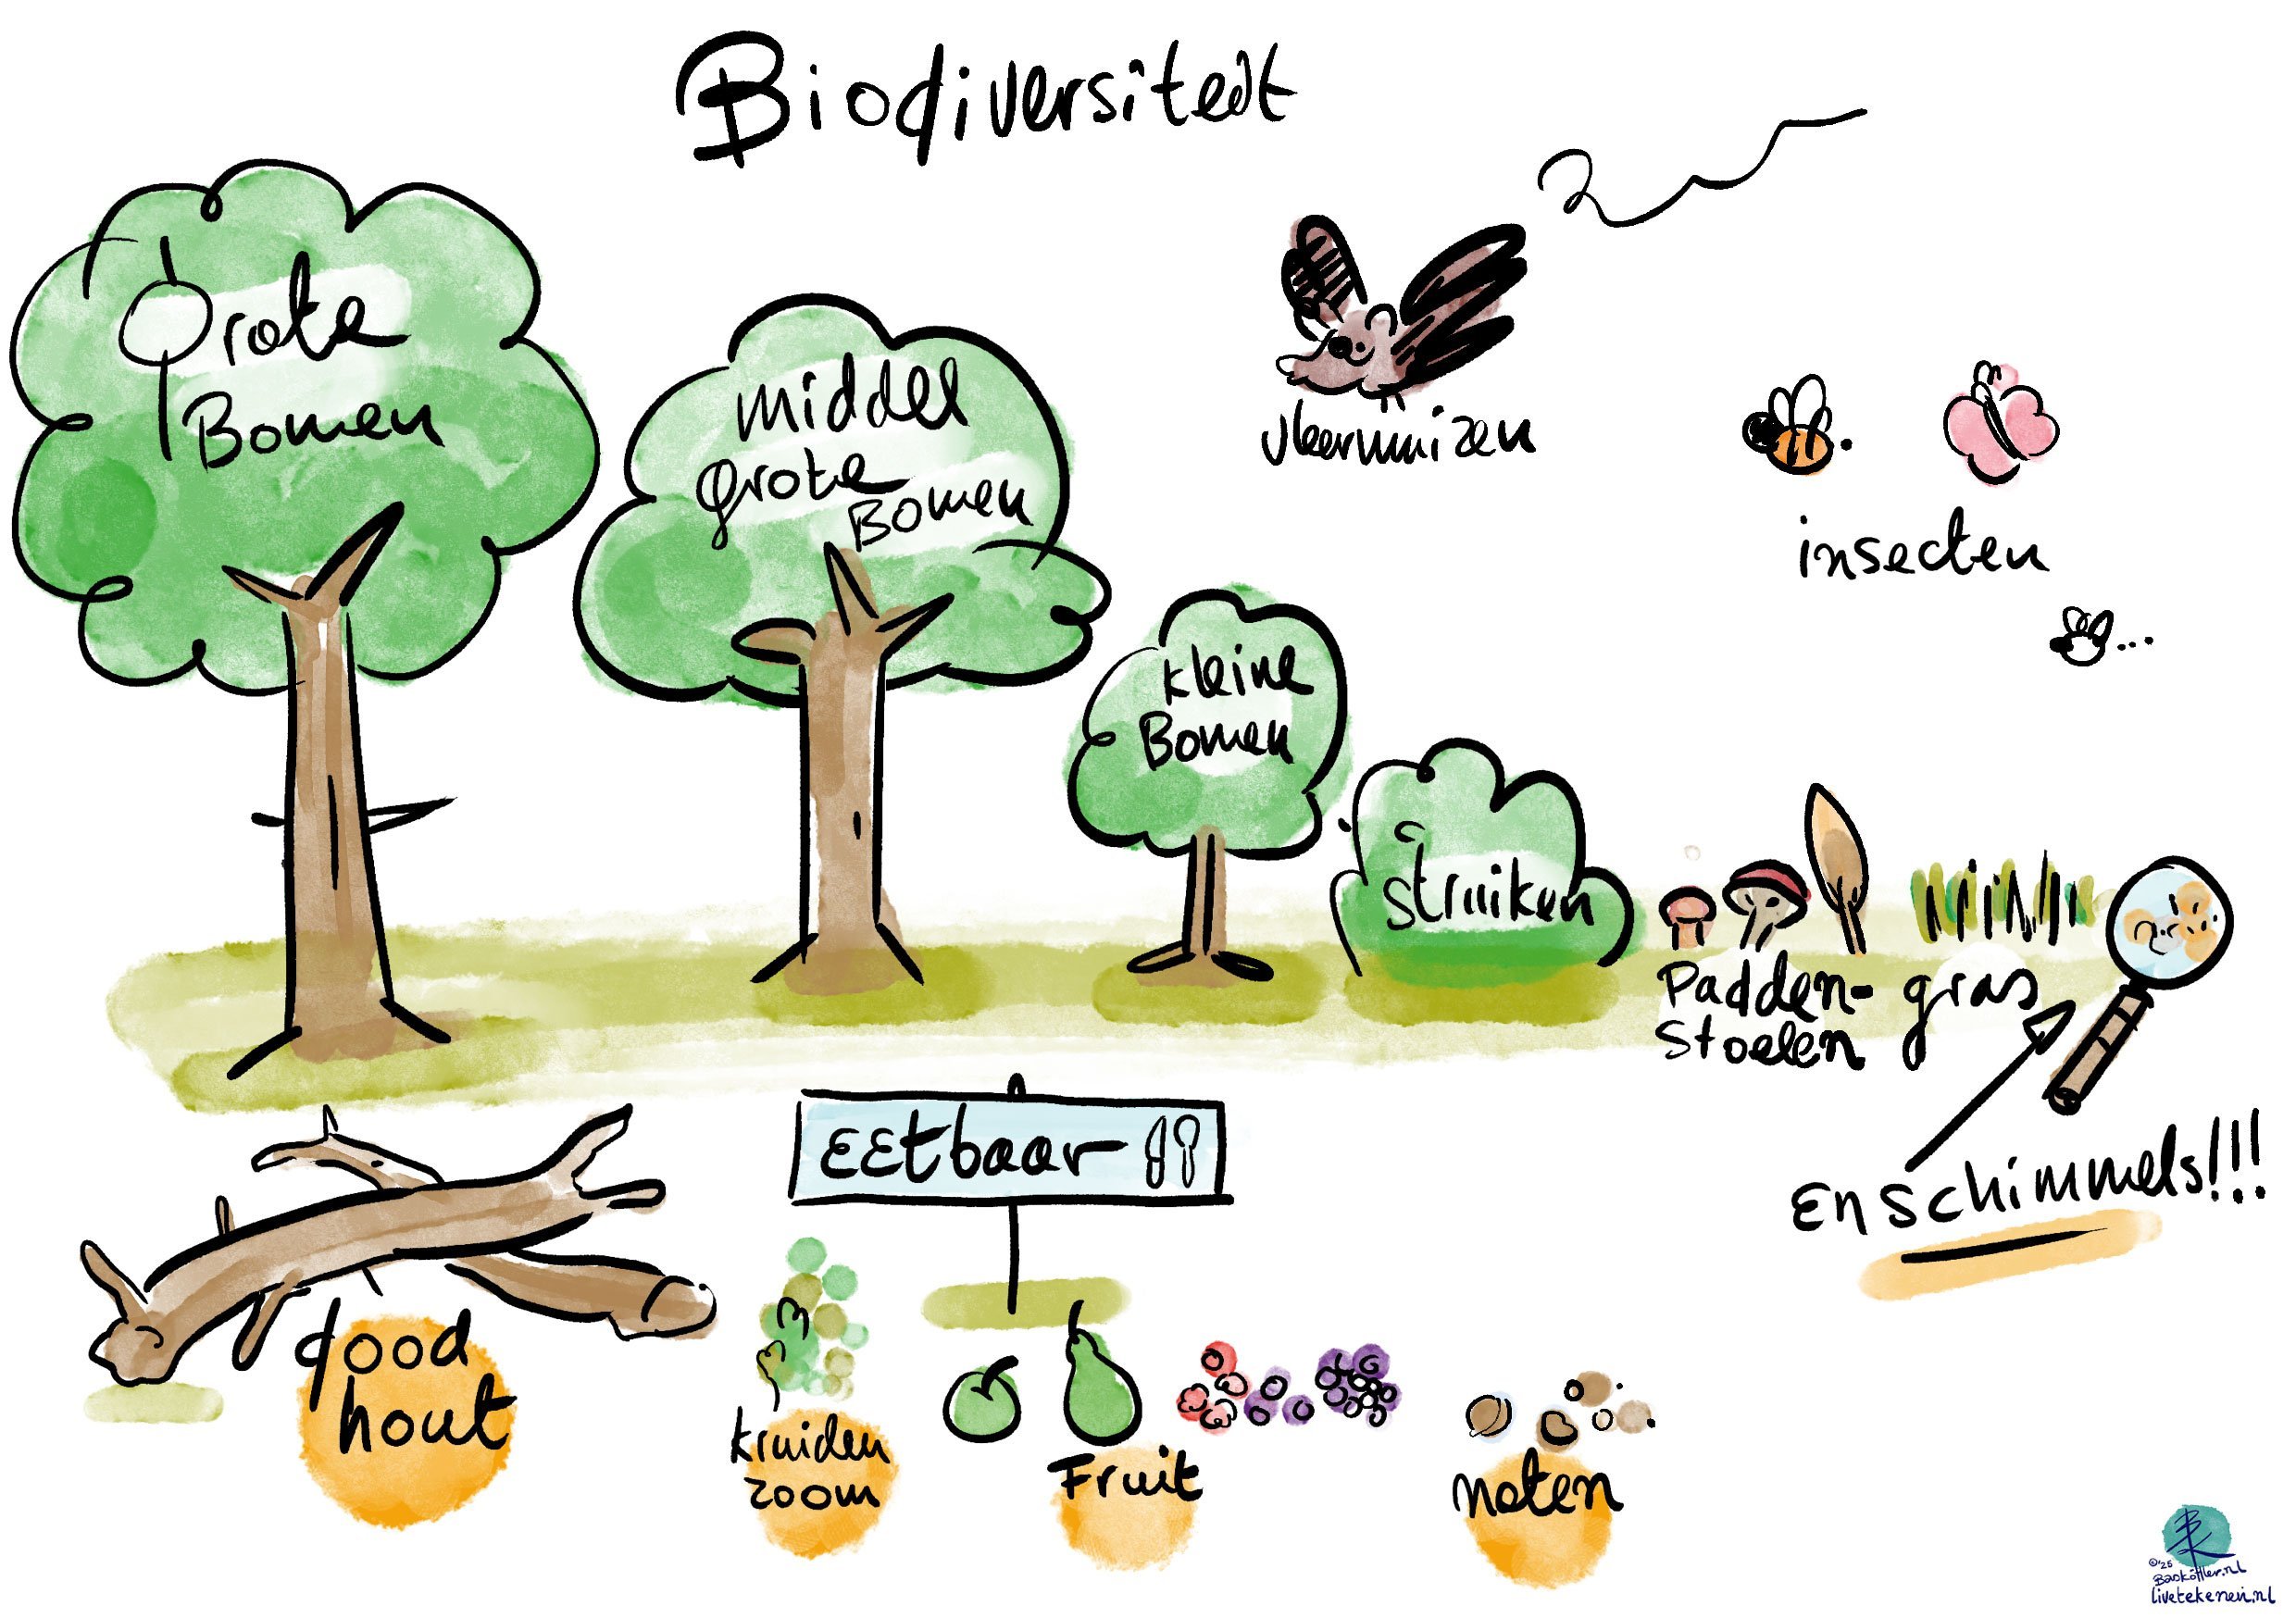 Biodiversiteit
Grote
Bomen
middel
grote
Bomen
vleermuizen
insecten
kleine
Bomen
struiken
Padden-
stoelen
gras
En schimmels!!!
EEtbaar
dood
hout
kruiden
zoom
Fruit
noten
©'25
Basköhler.nl
livetekenen.nl